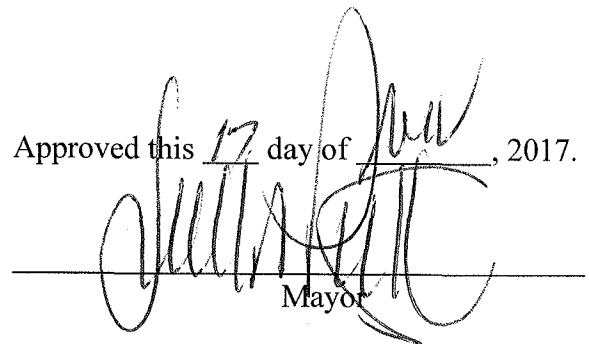 Approved this 17 day of , 2017.
Mayor